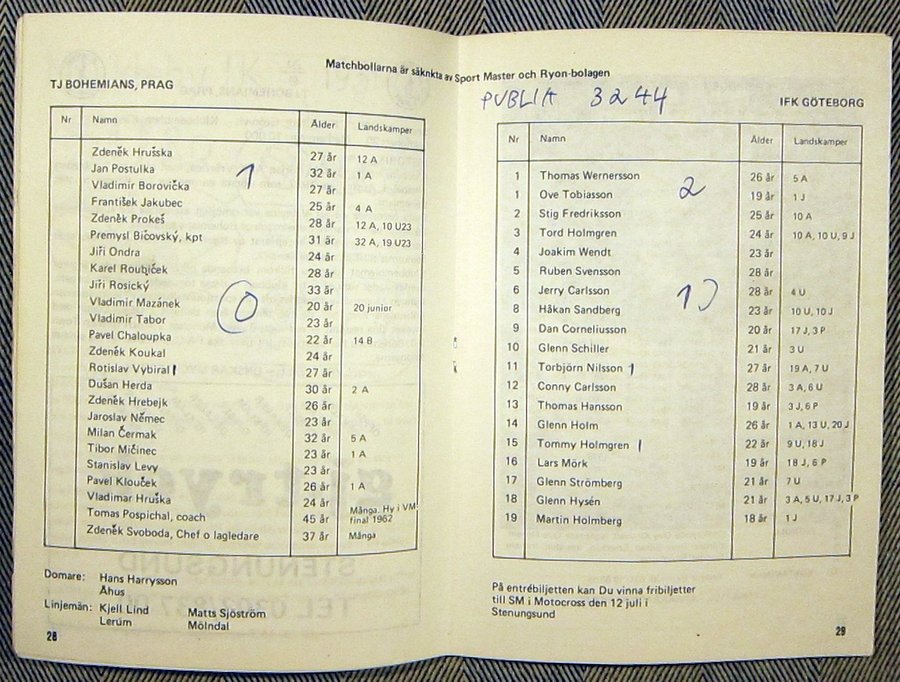 Matchbollarna är säknkta av Sport Master och Ryon-bolagen
TJ BOHEMIANS, PRAG
Nr Namn Ålder Landskamper
Zdeněk Hrušska 27 år 12 A
Jan Postulka 32 år 1 A
1
Vladimir Borovička 27 år
František Jakubec 25 år 4 A
Zdeněk Prokeš 28 år 12 A, 10 U23
Premysl Bičovský, kpt 31 år 32 A, 19 U23
Jiří Ondra 24 år
Karel Roubiček 28 år
Jiří Rosický 33 år
Vladimir Mazánek 20 år 20 junior
(0)
Vladimir Tabor 23 år
Pavel Chaloupka 22 år 14 B
Zdeněk Koukal 24 år
Rotislav Vybiral 1 27 år
Dušan Herda 30 år 2 A
Zdeněk Hrebejk 26 år
Jaroslav Němec 23 år
Milan Čermak 32 år 5 A
Tibor Mičinec 23 år 1 A
Stanislav Levy 23 år
Pavel Klouček 26 år 1 A
Vladimar Hruška 24 år
Tomas Pospichal, coach 45 år Många. Hy i VM final 1962
Zdeněk Svoboda, Chef o lagledare 37 år Många
Domare: Hans Harrysson
Åhus
Linjemän: Kjell Lind Matts Sjöström
Lerum Mölndal
28
PUBLIK 3244
IFK GÖTEBORG
Nr Namn Ålder Landskamper
1 Thomas Wernersson 26 år 5 A
2
1 Ove Tobiasson 19 år 1 J
2 Stig Fredriksson 25 år 10 A
3 Tord Holmgren 24 år 10 A, 10 U, 9 J
4 Joakim Wendt 23 år
5 Ruben Svensson 28 år
6 Jerry Carlsson 28 år 4 U
1)
8 Håkan Sandberg 23 år 10 U, 10 J
9 Dan Corneliusson 20 år 17 J, 3 P
10 Glenn Schiller 21 år 3 U
11 Torbjörn Nilsson 1 27 år 19 A, 7 U
12 Conny Carlsson 28 år 3 A, 6 U
13 Thomas Hansson 19 år 3 J, 6 P
14 Glenn Holm 26 år 1 A, 13 U, 20 J
15 Tommy Holmgren 1 22 år 9 U, 18 J
16 Lars Mörk 19 år 18 J, 6 P
17 Glenn Strömberg 21 år 7 U
18 Glenn Hysén 21 år 3 A, 5 U, 17 J, 3 P
19 Martin Holmberg 18 år 1 J
På entrébiljetten kan Du vinna fribiljetter
till SM i Motocross den 12 juli i
Stenungsund
29